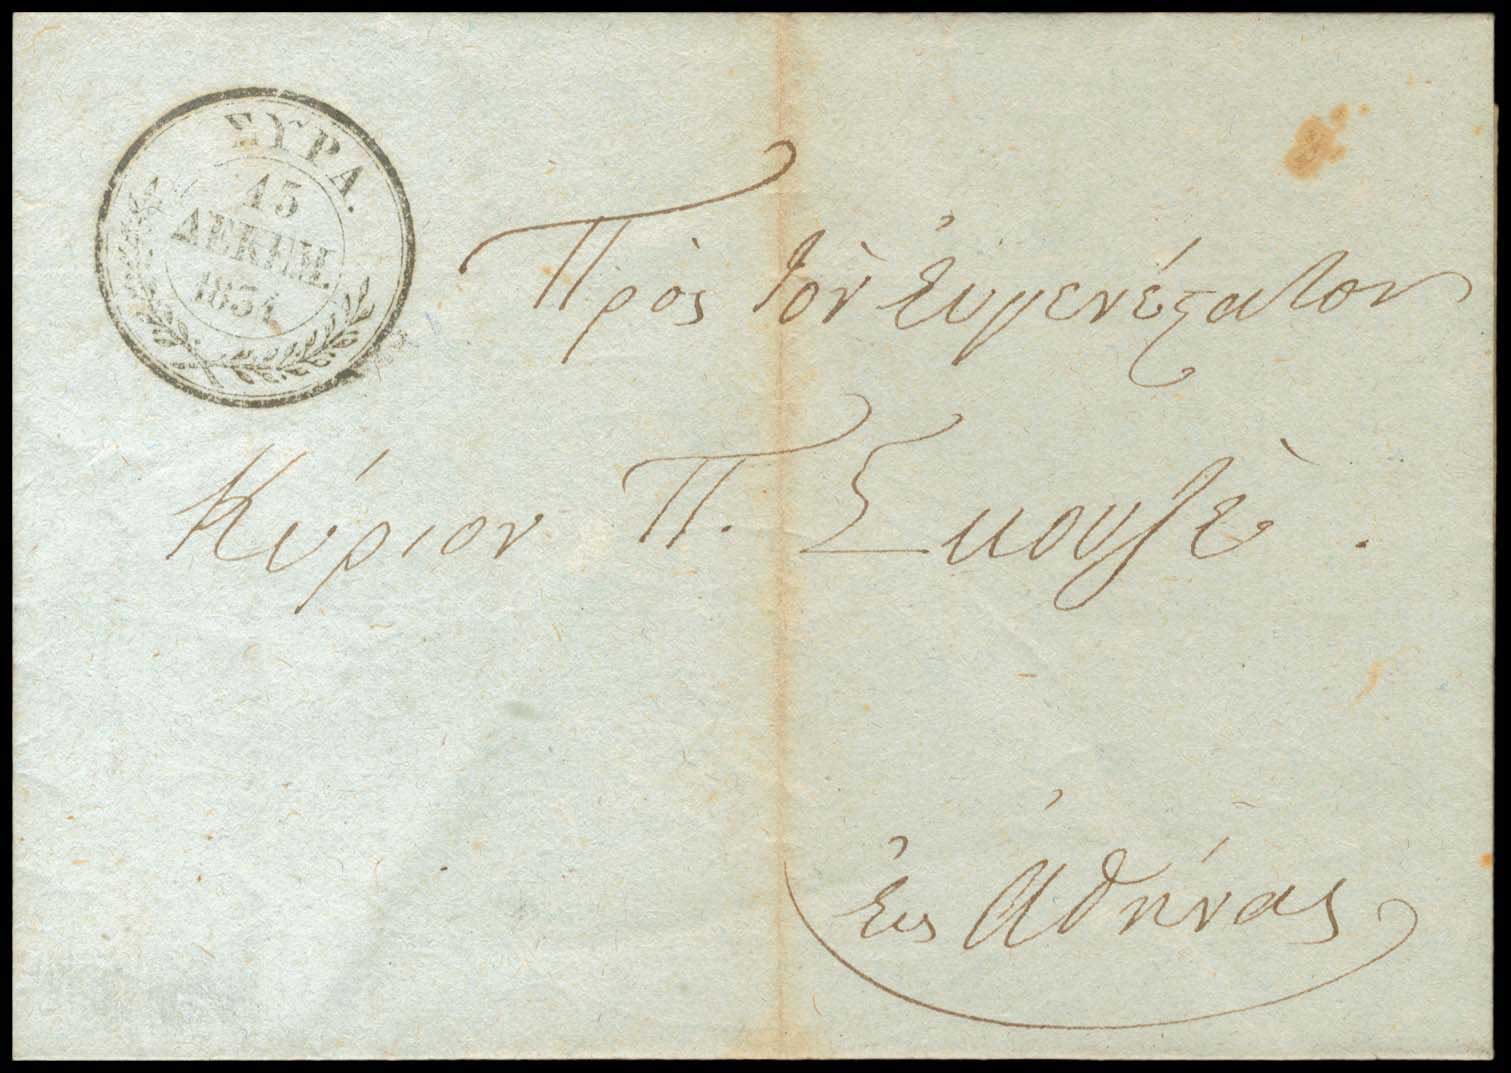 ΣΥΡΑ.
15
ΔΕΚΕΜ.
1834
Πρὸς τὸν Εὐγενέςατον
Κύριον Π. Σκουζὲ.
Εἰς Ἀθήνας